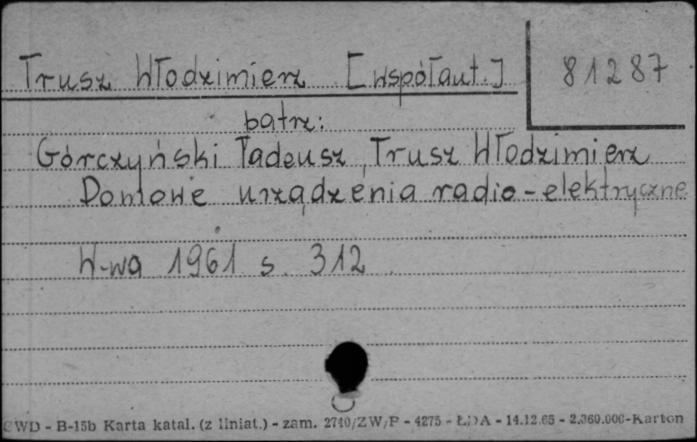 Trusz Włodzimierz [współaut.] 81287
patrz:
Górczyński Tadeusz, Trusz Włodzimierz
Domowe urządzenia radio-elektryczne
W-wa 1961 s. 312
CWD - B-15b Karta katal. (z liniat.) - zam. 2740/ZW/P - 4275 - ŁDA - 14.12.65 - 2.360.000-Karton